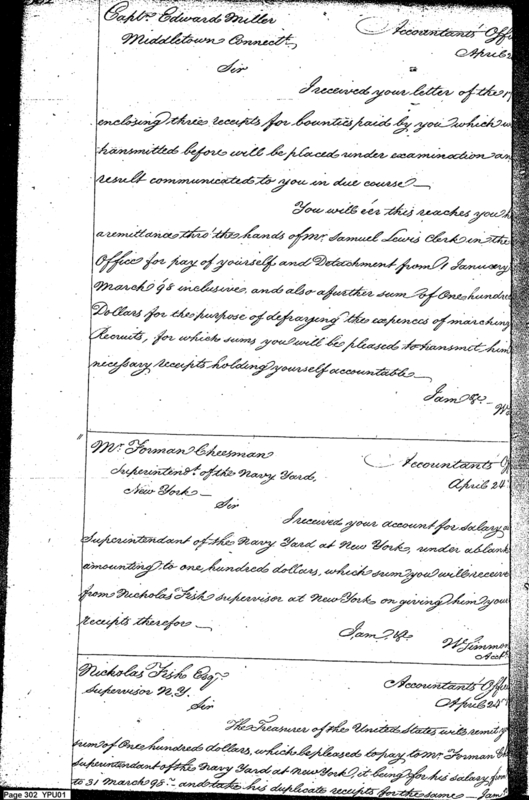 Capt. Edward Miller
Accountants' Offi
Middletown Connectt.
April 2
Sir
I received your letter of the 17
enclosing three receipts for bounties paid by you which
transmitted before will be placed under examination an
result communicated to you in due course —
You will e'er this reaches you h
a remittance thro' the hands of Mr. Samuel Lewis Clerk in the
Office for pay of yourself and Detachment from 1 January
March 98 inclusive, and also a further sum of One hundre
Dollars for the purpose of defraying the expences of marching
Recruits, for which sums you will be pleased to transmit him
necessary receipts holding yourself accountable —
I am &c —
Mr. Forman Cheesman
Accountants Of
Superintendt. of the Navy Yard,
April 24th
New York —
Sir
I received your account for salary a
Superintendant of the Navy Yard at New York, under a blank
amounting to one hundred dollars, which sum you will receive
from Nicholas Fish supervisor at New York on giving him your
receipts therefor —
I am &c.
W Simmon
Acct.
Nicholas Fish Esqr.
Accountants' Office
Supervisor N.Y.
April 24th
Sir
The Treasurer of the United States will remit y
sum of One hundred dollars, which be pleased to pay to Mr. Forman Ch
superintendant of the Navy Yard at New York, it being for his salary from
to 31 March 98 and take his duplicate receipts for the same — I am
Page 302 YPU01